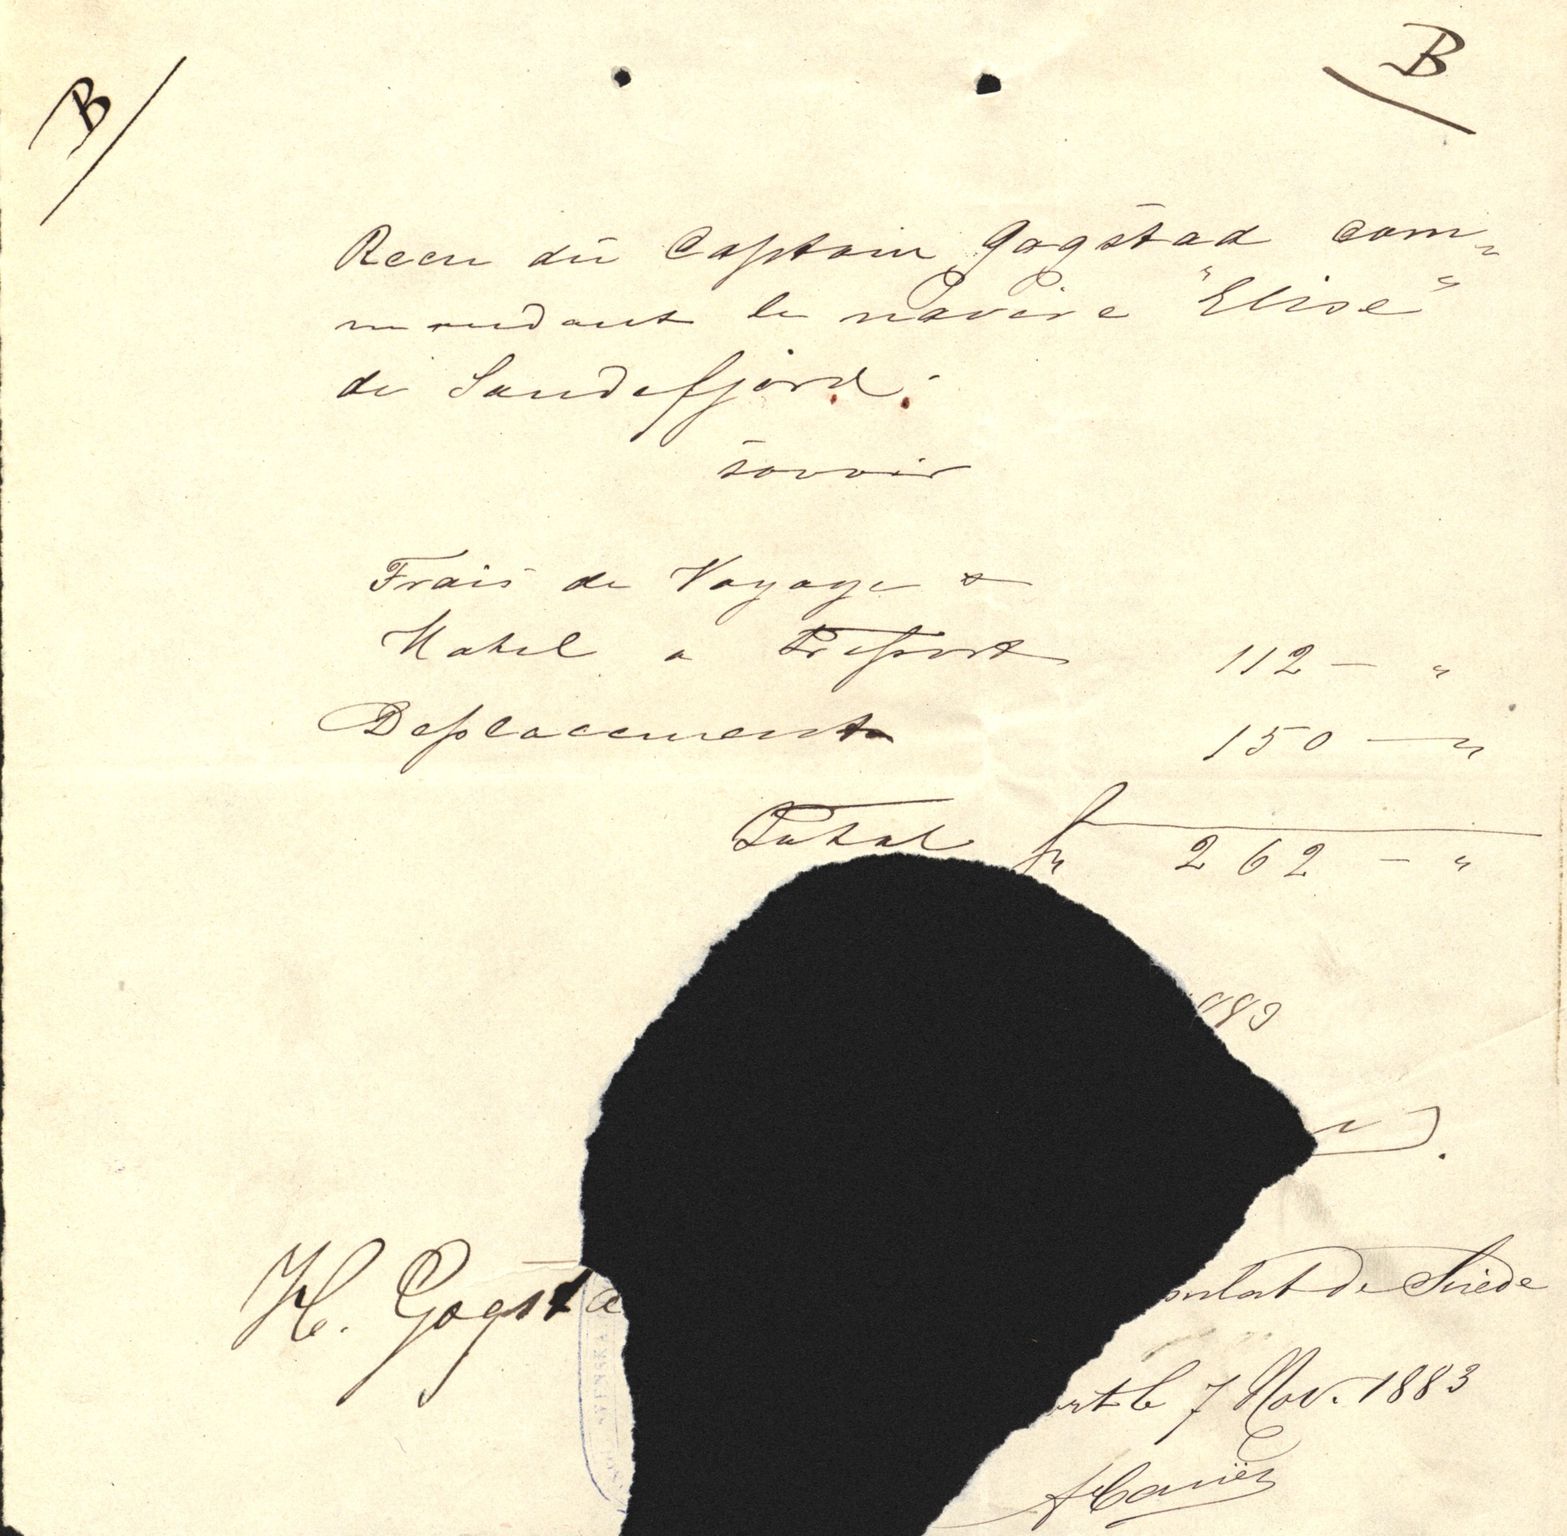 B
B
Recu du Captain Gogstad com-
mandant le navire "Elise"
de Sandefjord.
savoir
Frais de Voyage &
Hotel a Treport 112 — "
Deplacement 150 — "
Total fr 262 — "
1883
H. Gogsta
onlat de Suède
ort le 7 Nov. 1883
SVENSKA